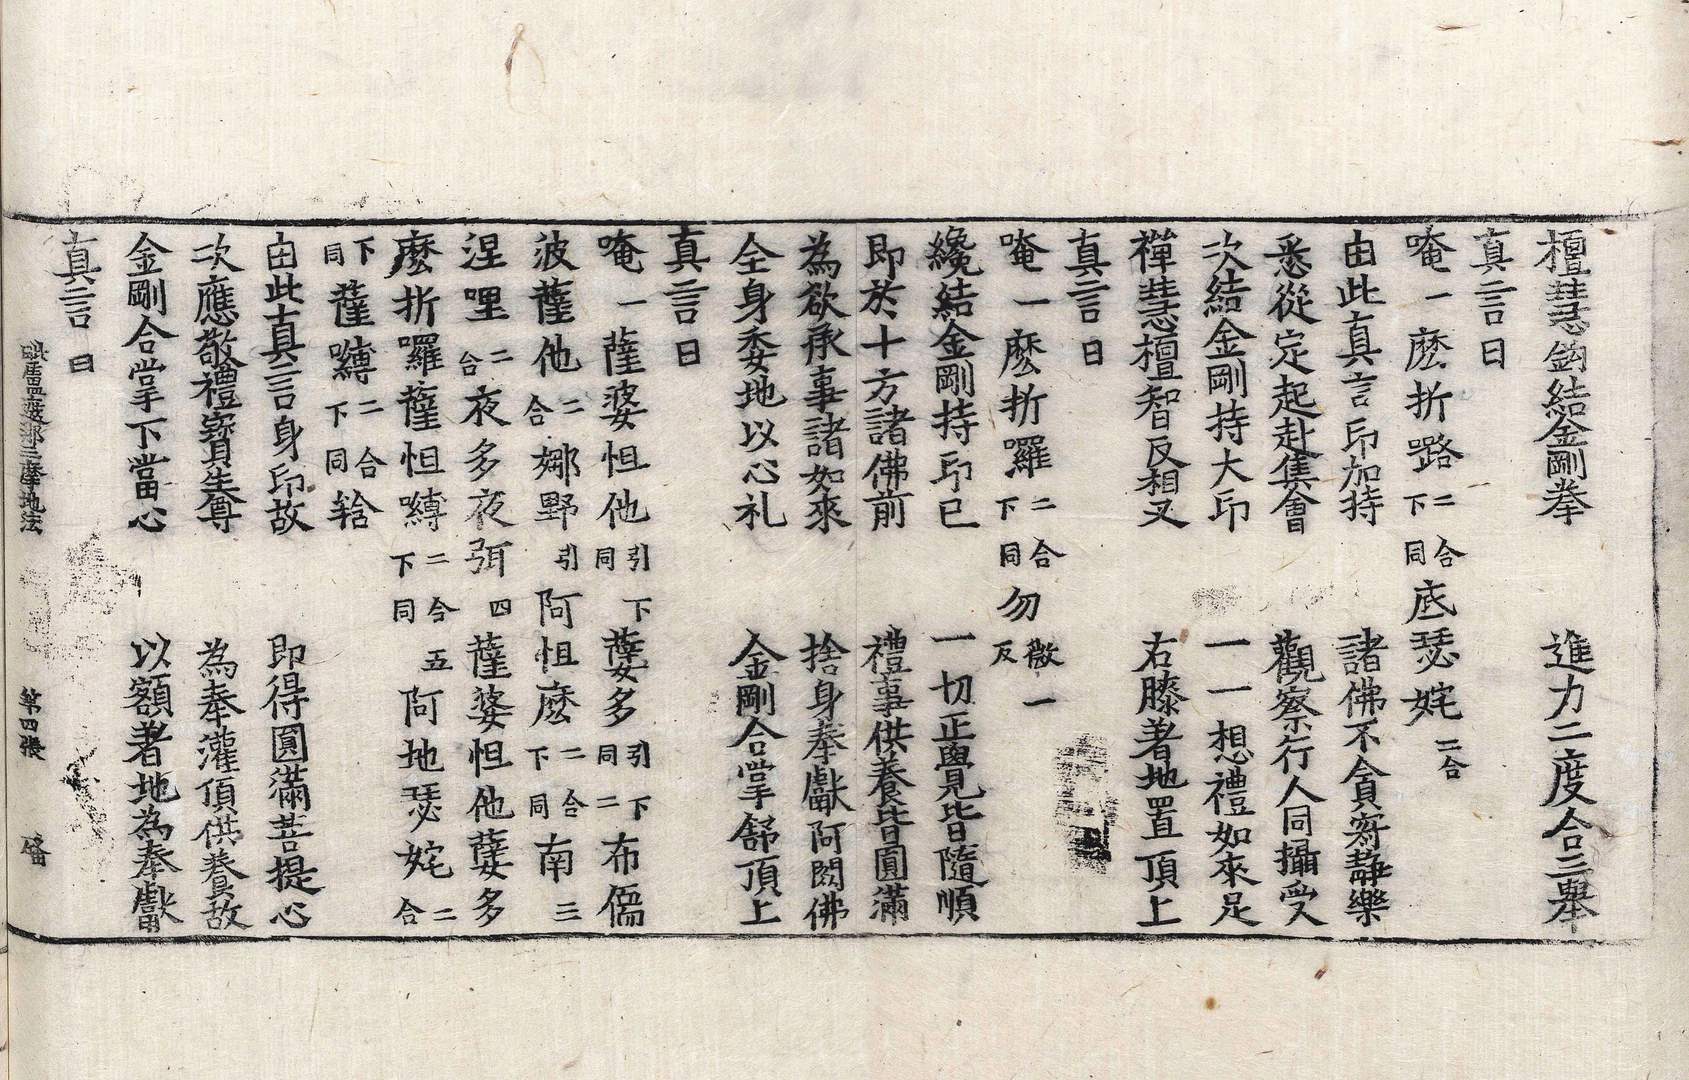 檀慧鉤結金剛拳 進力二度合三舉
真言曰
唵一麽折㘕二合下同底瑟姹二合
由此真言印加持 諸佛不貪寂靜樂
悉從定起赴集會 觀察行人同攝受
次結金剛持大印 一一想禮如來足
禪慧檀智反相叉 右膝著地置頂上
真言曰
唵一麽折囉二合下同勿微一反
纔結金剛持印已 一切正覺皆隨順
即於十方諸佛前 禮事供養皆圓滿
為欲承事諸如來 捨身奉獻阿閦佛
全身委地以心礼 金剛合掌舒頂上
真言曰
唵一薩婆怛他引下同蘖多引下同布儒二
波薩他二合娜野引阿怛麽二合下同南三
涅哩二合夜多夜弭四薩婆怛他蘖多
麽折囉薩怛嚩二合下同五阿地瑟姹二合
下同薩嚩二合下同𤚥
由此真言身印故 即得圓滿菩提心
次應敬禮寶生尊 為奉灌頂供養故
金剛合掌下當心 以額著地為奉獻
真言曰
三摩地法 第四張